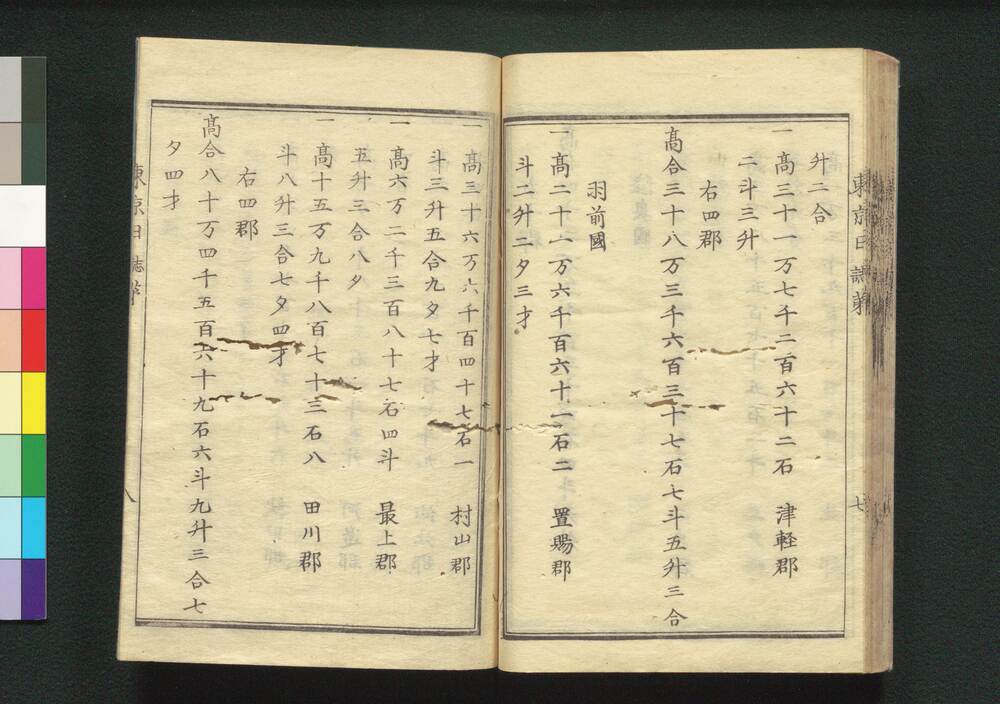 升二合
一 高三十一万七千二百六十二石 津軽郡
二斗三升
右四郡
高合三十八万三千六百三十七石七斗五升三合
羽前國
一 高二十一万六千百六十一石二 置賜郡
斗二升二夕三才
七
一 高三十六万六千百四十七石一 村山郡
斗三升五合九夕七才
一 高六万二千三百八十七石四斗 最上郡
五升三合八夕
一 高十五万九千八百七十三石八 田川郡
斗八升三合七夕四才
右四郡
高合八十万四千五百六十九石六斗九升三合七
夕四才
東京日誌
八